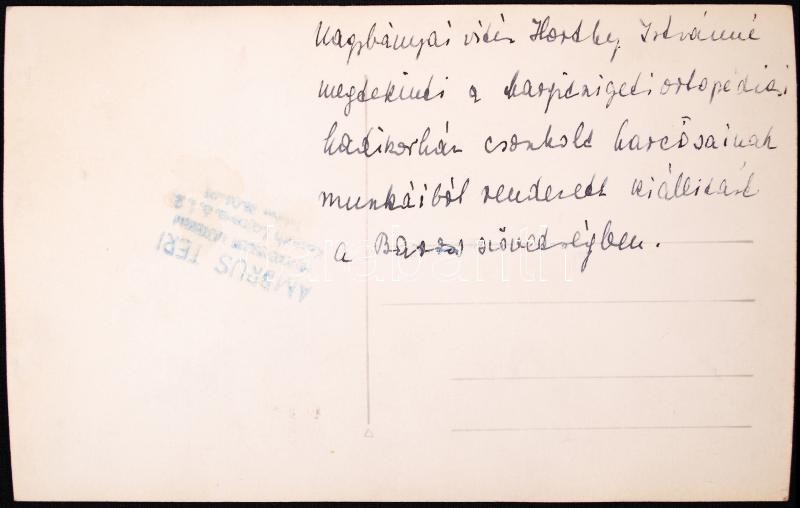 Nagybányai vitéz Horthy Istvánné
megtekinti a hárpitszigeti ortopédiai
hadikórház csonkolt harcósainak
munkáiból rendezett kiállitást
a Baross szövetségben.
AMBRUS TERI
darabanth